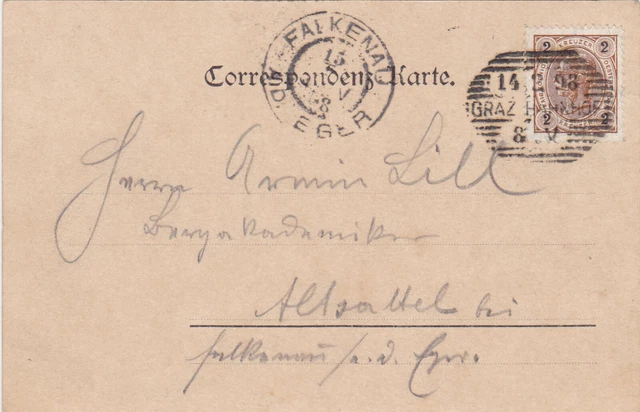 FALKENAU
15
V
8
EGER
Correspondenz-Karte.
2 KREUZER 2
2 2
14.2.98
GRAZ BAHNHOF
8 V
Herrn Armin Lill
Bergakademiker
Altsattel bei
Falkenau a. d. Eger.